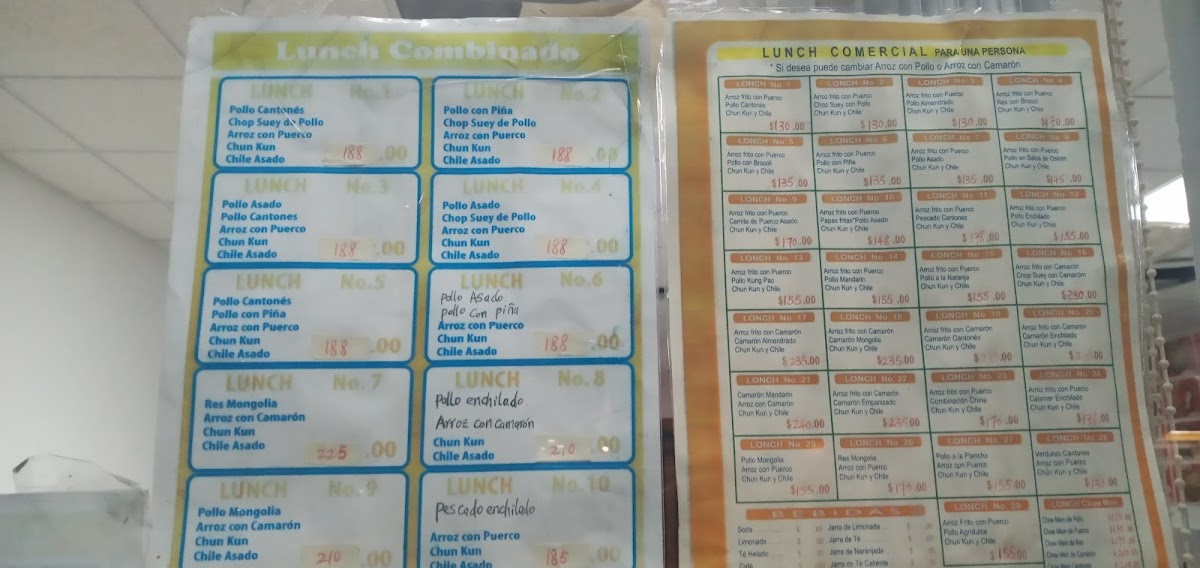 Lunch Combinado
LUNCH No.1
Pollo Cantonés
Chop Suey de Pollo
Arroz con Puerco
Chun Kun
Chile Asado 188 .00
LUNCH No.2
Pollo con Piña
Chop Suey de Pollo
Arroz con Puerco
Chun Kun
Chile Asado 188 .00
LUNCH No.3
Pollo Asado
Pollo Cantones
Arroz con Puerco
Chun Kun
Chile Asado 188 .00
LUNCH No.4
Pollo Asado
Chop Suey de Pollo
Arroz con Puerco
Chun Kun
Chile Asado 188 .00
LUNCH No.5
Pollo Cantonés
Pollo con Piña
Arroz con Puerco
Chun Kun
Chile Asado 188 .00
LUNCH No.6
pollo Asado
pollo con piña
Arroz con Puerco
Chun Kun
Chile Asado 188 .00
LUNCH No.7
Res Mongolia
Arroz con Camarón
Chun Kun
Chile Asado 225 .00
LUNCH No.8
pollo enchilado
Arroz con camarón
Chun Kun
Chile Asado 210 .00
LUNCH No.9
Pollo Mongolia
Arroz con Camarón
Chun Kun
Chile Asado 210 .00
LUNCH No.10
pescado enchilado
Arroz con Puerco
Chun Kun
Chile Asado 185 .00
LUNCH COMERCIAL PARA UNA PERSONA
* Si desea puede cambiar Arroz con Pollo o Arroz con Camarón
LONCH No. 1
Arroz frito con Puerco
Pollo Cantones
Chun Kun y Chile
$130.00
LONCH No. 2
Arroz frito con Puerco
Chop Suey con Pollo
Chun Kun y Chile
$130.00
LONCH No. 3
Arroz frito con Puerco
Pollo Almendrado
Chun Kun y Chile
$130.00
LONCH No. 4
Arroz frito con Puerco
Res con Brocoli
Chun Kun y Chile
$170.00
LONCH No. 5
Arroz frito con Puerco
Pollo con Brocoli
Chun Kun y Chile
$135.00
LONCH No. 6
Arroz frito con Puerco
Pollo con Piña
Chun Kun y Chile
$135.00
LONCH No. 7
Arroz frito con Puerco
Pollo Asado
Chun Kun y Chile
$135.00
LONCH No. 8
Arroz frito con Puerco
Pollo en Salsa de Ostión
Chun Kun y Chile
.00
LONCH No. 9
Arroz frito con Puerco
Carnita de Puerco Asado
Chun Kun y Chile
$170.00
LONCH No. 10
Arroz frito con Puerco
Papas fritas*Pollo Asado
Chun Kun y Chile
$148.00
LONCH No. 11
Arroz frito con Puerco
Pescado Cantones
Chun Kun y Chile
.00
LONCH No. 12
Arroz frito con Puerco
Pollo Enchilado
Chun Kun y Chile
$155.00
LONCH No. 13
Arroz frito con Puerco
Pollo Kung Pao
Chun Kun y Chile
$155.00
LONCH No. 14
Arroz frito con Puerco
Pollo Mandarin
Chun Kun y Chile
$155.00
LONCH No. 15
Arroz frito con Puerco
Pollo a la Naranja
Chun Kun y Chile
$155.00
LONCH No. 16
Arroz frito con Camarón
Chop Suey con Camarón
Chun Kun y Chile
$230.00
LONCH No. 17
Arroz frito con Camarón
Camarón Almendrado
Chun Kun y Chile
$235.00
LONCH No. 18
Arroz frito con Camarón
Camarón Mongolia
Chun Kun y Chile
$235.00
LONCH No. 19
Arroz frito con Camarón
Camarón Cantonés
Chun Kun y Chile
.00
LONCH No. 20
Arroz frito con Camarón
Camarón Enchilado
Chun Kun y Chile
.00
LONCH No. 21
Camarón Mandarin
Arroz con Camarón
Chun Kun y Chile
$240.00
LONCH No. 22
Arroz frito con Camarón
Camarón Empanizado
Chun Kun y Chile
$235.00
LONCH No. 23
Arroz frito con Puerco
Combinación China
Chun Kun y Chile
$170.00
LONCH No. 24
Arroz frito con Puerco
Calamar Enchilado
Chun Kun y Chile
.00
LONCH No. 25
Pollo Mongolia
Arroz con Puerco
Chun Kun y Chile
$155.00
LONCH No. 26
Res Mongolia
Arroz con Puerco
Chun Kun y Chile
$170.00
LONCH No. 27
Pollo a la Plancha
Arroz con Puerco
Chun Kun y Chile
$155.00
LONCH No. 28
Verduras Cantones
Arroz con Puerco
Chun Kun y Chile
$130.00
BEBIDAS
Soda $ 00
Limonada $ 00
Té Helado $ 00
Café
Jarra de Limonada $ 00
Jarra de Té $ 00
Jarra de Naranjada $ 00
Jarra de Té Caliente $
LONCH No. 29
Arroz Frito con Puerco
Pollo Agridulce
Chun Kun y Chile
$155.00
LONCH Chow Mein
Chow Mein de Pollo
Chow Mein de Puerco
Chow Mein de Res
Chow Mein de Camarón